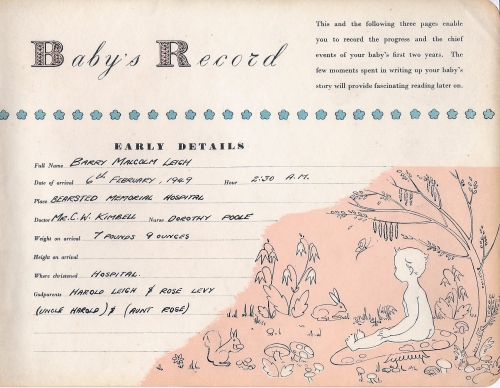 Baby's Record
This and the following three pages enable
you to record the progress and the chief
events of your baby's first two years. The
few moments spent in writing up your baby's
story will provide fascinating reading later on.
EARLY DETAILS
Full Name BARRY MALCOLM LEIGH
Date of arrival 6th FEBRUARY, 1949 Hour 2:30 A.M.
Place BEARSTED MEMORIAL HOSPITAL
Doctor MR. C. W. KIMBELL Nurse DOROTHY POOLE
Weight on arrival 7 POUNDS 9 OUNCES
Height on arrival
Where christened HOSPITAL.
Godparents HAROLD LEIGH & ROSE LEVY
(UNCLE HAROLD) & (AUNT ROSE)